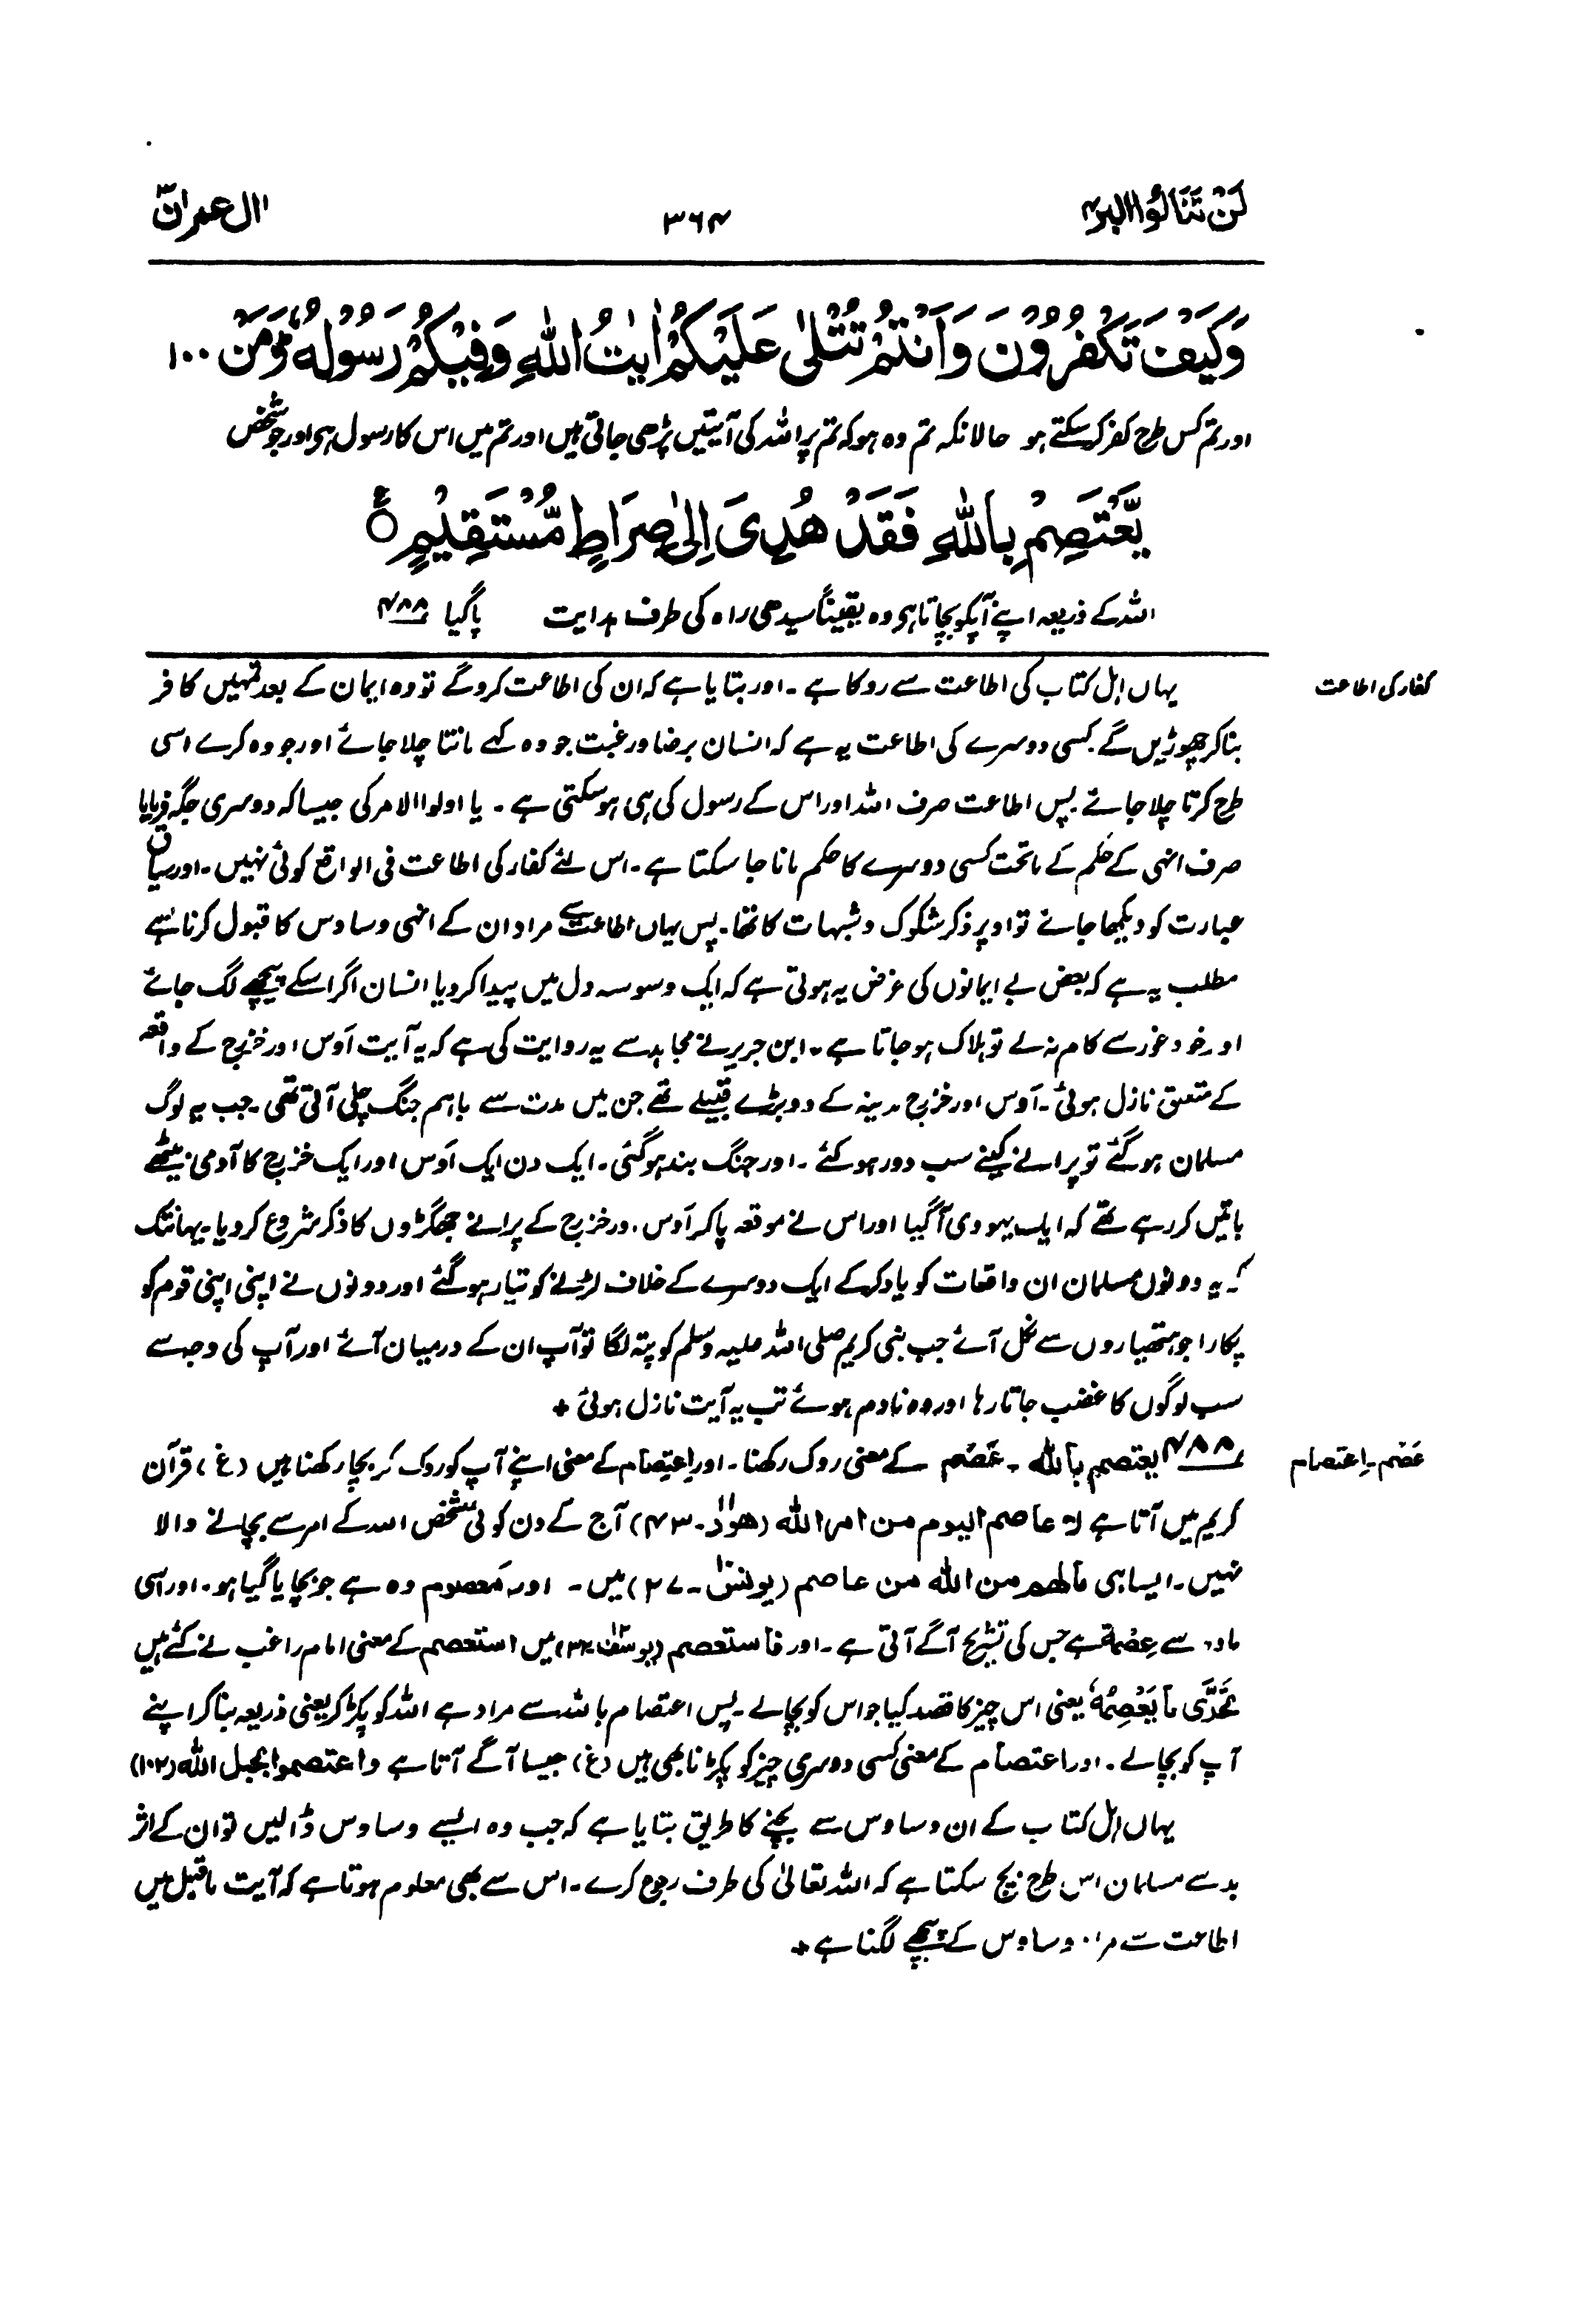 لَنْ تَنَالُوا البر ۴
۳۶۴
اٰل عمران ۳
وَكَيْفَ تَكْفُرُوْنَ وَاَنْتُمْ تُتْلٰى عَلَيْكُمْ اٰيٰتُ اللّٰهِ وَفِيْكُمْ رَسُوْلُهٗ ؕ وَمَنْ ۱۰۰
اور تم کس طرح کفر کر سکتے ہو حالانکہ تم وہ ہو کہ تم پر اللہ کی آیتیں پڑھی جاتی ہیں اور تم میں اس کا رسول ہی اور جو شخص
يَّعْتَصِمْ بِاللّٰهِ فَقَدْ هُدِيَ اِلٰى صِرَاطٍ مُّسْتَقِيْمٍ ○
اللہ کے ذریعہ اپنے آپکو بچاتا ہی وہ یقیناً سیدھی راہ کی طرف ہدایت پا گیا ۴۸۸
کفار کی اطاعت
یہاں اہل کتاب کی اطاعت سے روکا ہے ۔ اور بتایا ہے کہ ان کی اطاعت کرو گے تو وہ ایمان کے بعد تمہیں کافر
بنا کر چھوڑیں گے کسی دوسرے کی اطاعت یہ ہے کہ انسان برضا و رغبت جو وہ کہے مانتا چلا جائے اور جو وہ کرے اسی
طرح کرتا چلا جائے پس اطاعت صرف اللہ اور اس کے رسول کی ہی ہو سکتی ہے ۔ یا اولوا الامر کی جیسا کہ دوسری جگہ فرمایا
صرف انہی کے حکم کے ماتحت کسی دوسرے کا حکم مانا جا سکتا ہے ۔ اس لئے کفار کی اطاعت فی الواقع کوئی نہیں ۔ اور سیاق
عبارت کو دیکھا جائے تو اوپر ذکر شکوک و شبہات کا تھا ۔ پس یہاں اطاعت سے مراد ان کے انہی وساوس کا قبول کرنا ہے
مطلب یہ ہے کہ بعض بے ایمانوں کی غرض یہ ہوتی ہے کہ ایک وسوسہ دل میں پیدا کر دیا انسان اگر اسکے پیچھے لگ جائے
اور خود غور سے کام نہ لے تو ہلاک ہو جاتا ہے ۔ ابن جریر نے مجاہد سے یہ روایت کی ہے کہ یہ آیت اَوس اور خزرج کے واقعہ
کے متعلق نازل ہوئی ۔ اَوس اور خزرج مدینہ کے دو بڑے قبیلے تھے جن میں مدت سے باہم جنگ چلی آتی تھی ۔ جب یہ لوگ
مسلمان ہو گئے تو پرانے کینے سب دور ہو گئے ۔ اور جنگ بند ہو گئی ۔ ایک دن ایک اَوس اور ایک خزرج کا آدمی بیٹھے
باتیں کر رہے تھے کہ ایک یہودی آگیا اور اس نے موقعہ پا کر اَوس اور خزرج کے پرانے جھگڑوں کا ذکر شروع کر دیا ۔ یہانتک
کہ یہ دونوں مسلمان ان واقعات کو یاد کر کے ایک دوسرے کے خلاف لڑنے کو تیار ہو گئے اور دونوں نے اپنی اپنی قوم کو
پکارا جو ہتھیاروں سے نکل آئے جب نبی کریم صلی اللہ علیہ وسلم کو پتہ لگا تو آپ ان کے درمیان آئے اور آپ کی وجہ سے
سب لوگوں کا غضب جاتا رہا اور وہ نادم ہوئے تب یہ آیت نازل ہوئی +
عَصْم ۔ اِعتصام
۴۸۸ یعتصم باللّٰه ۔ عَصْم کے معنی روک رکھنا ۔ اور اِعتِصام کے معنی اپنے آپ کو روک کر بچا رکھنا ہیں (غ) قرآن
کریم میں آتا ہے لا عاصم الیوم من امر اللّٰه (ھود ۱۱ ۔ ۴۳) آج کے دن کوئی شخص اللہ کے امر سے بچانے والا
نہیں ۔ ایسا ہی مالھم من اللّٰه من عاصم (یونس ۱۰ ۔ ۲۷) میں ۔ اور مَعصوم وہ ہے جو بچایا گیا ہو ۔ اور اسی
مادہ سے عِصْمَة ہے جس کی تشریح آگے آتی ہے ۔ اور فاستعصم (یوسف ۱۲ ۔ ۳۲) میں استعصم کے معنی امام راغب نے کئے ہیں
تَحَرَّى مَا يَعْصِمُهٗ یعنی اس چیز کا قصد کیا جو اس کو بچالے ۔ پس اعتصام باللہ سے مراد ہے اللہ کو پکڑ کر یعنی ذریعہ بنا کر اپنے
آپ کو بچالے ۔ اور اعتصام کے معنی کسی دوسری چیز کو پکڑنا بھی ہیں (غ) جیسا آگے آتا ہے واعتصموا بحبل اللّٰه (۱۰۲)
یہاں اہل کتاب کے ان وساوس سے بچنے کا طریق بتایا ہے کہ جب وہ ایسے وساوس ڈالیں تو ان کے اثر
بد سے مسلمان اس طرح بچ سکتا ہے کہ اللہ تعالیٰ کی طرف رجوع کرے ۔ اس سے بھی معلوم ہوتا ہے کہ آیت ماقبل میں
اطاعت سے مراد وساوس کے پیچھے لگنا ہے +